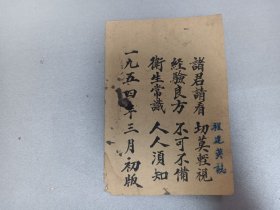 諸君請看 切莫輕視
經驗良方 不可不備
衛生常識 人人須知
一九五四年三月初版
程建英執